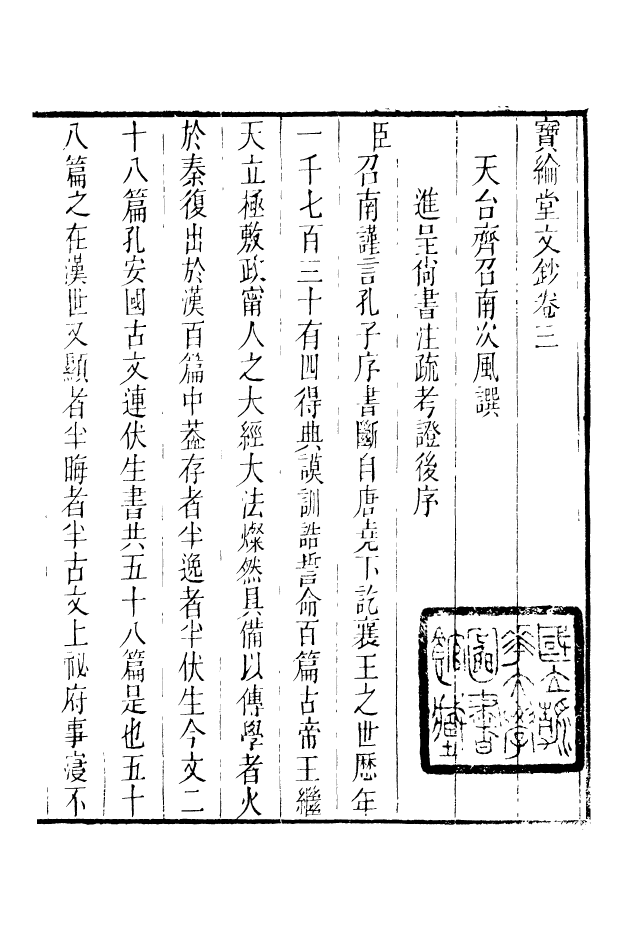 寶綸堂文鈔卷三
天台齊召南次風譔
進呈尙書注疏考證後序
臣召南謹言孔子序書斷自唐堯下訖襄王之世歷年
一千七百三十有四得典謨訓誥誓命百篇古帝王繼
天立極敷政甯人之大經大法燦然具備以傳學者火
於秦復出於漢百篇中葢存者半逸者半伏生今文二
十八篇孔安國古文連伏生書共五十八篇是也五十
八篇之在漢世又顯者半晦者半古文上祕府事寖不
國立
圖書
館藏